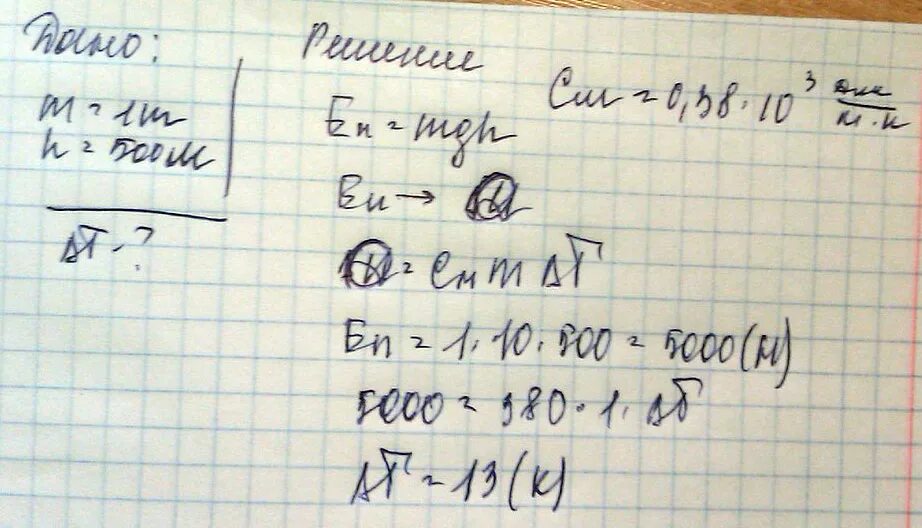 Дано:
m = 1т
h = 500м
ΔT - ?
Решение
См = 0,38 · 10³ Дж/м·к
Еп = mgh
Еп →
= См m ΔT
Еп = 1 · 10 · 500 = 5000 (Н)
5000 = 380 · 1 · ΔT
ΔT = 13 (К)